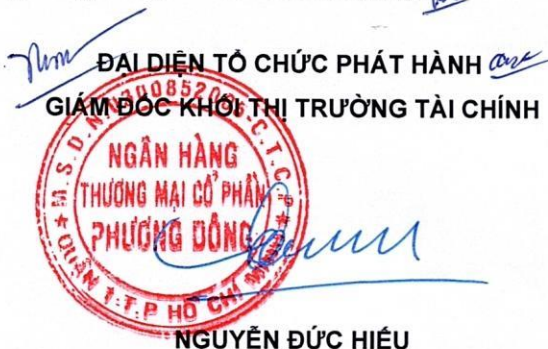 ĐẠI DIỆN TỔ CHỨC PHÁT HÀNH
GIÁM ĐỐC KHỐI THỊ TRƯỜNG TÀI CHÍNH
M.S.D.N: 0300852005-C.T.C.P
NGÂN HÀNG
THƯƠNG MẠI CỔ PHẦN
PHƯƠNG ĐÔNG
QUẬN 1-T.P HỒ CHÍ MINH
NGUYỄN ĐỨC HIẾU